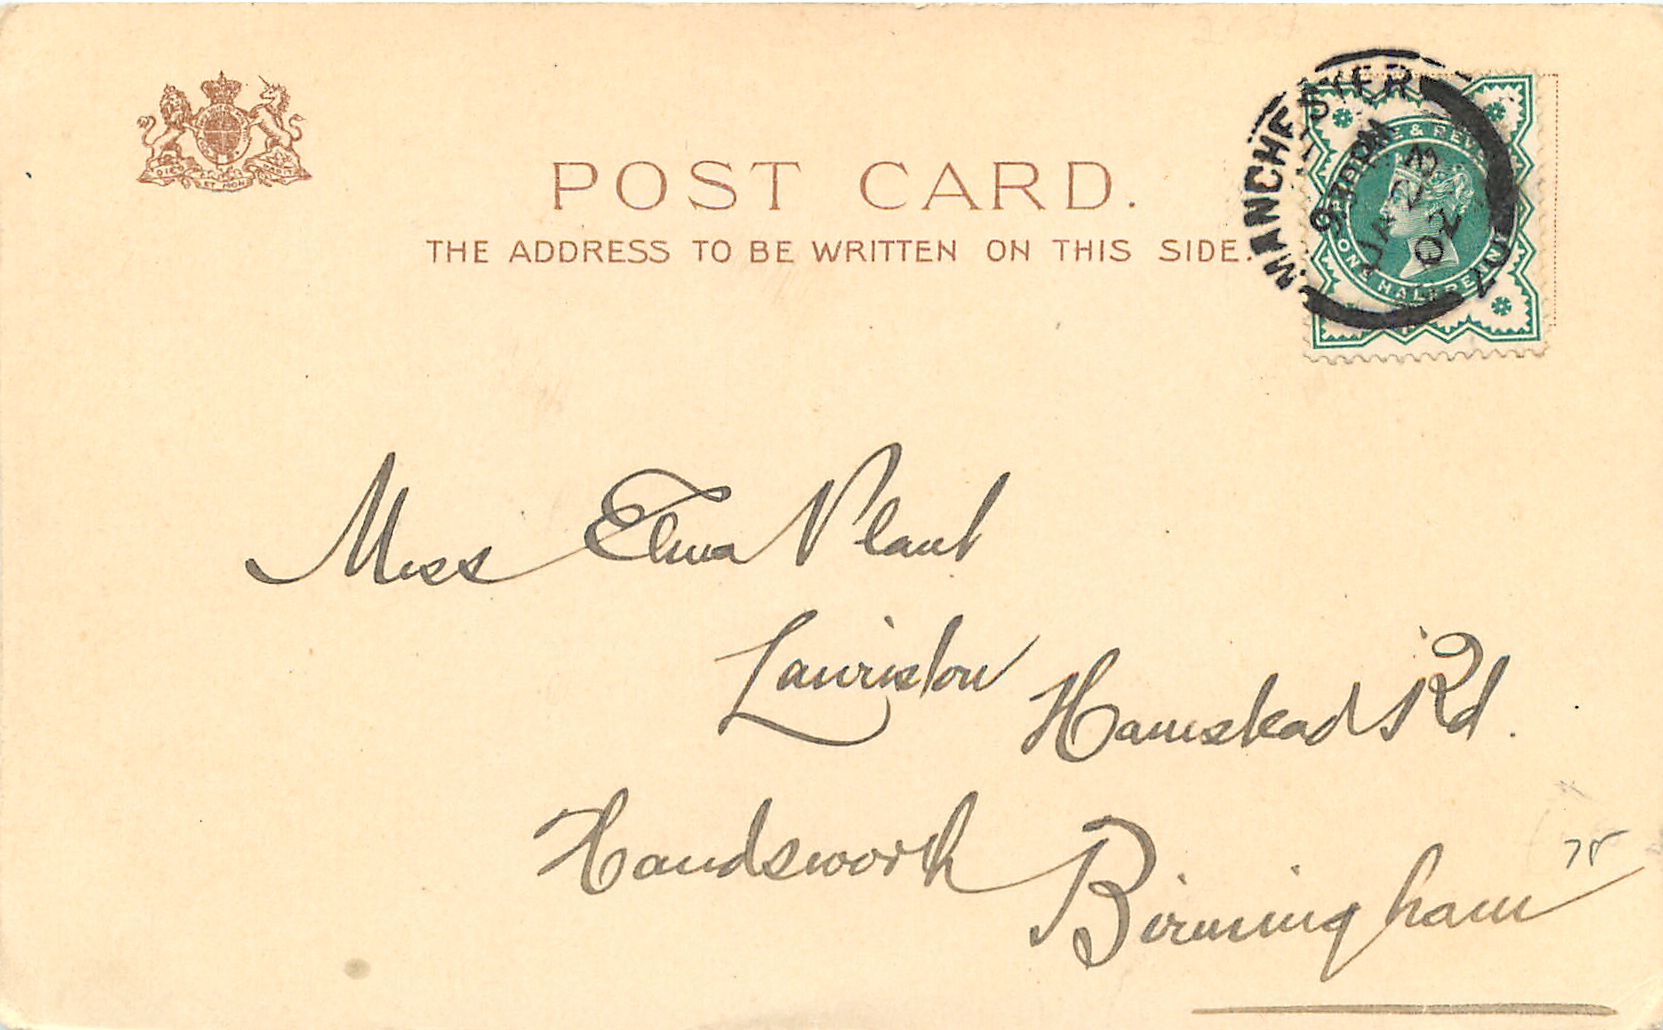 POST CARD.
THE ADDRESS TO BE WRITTEN ON THIS SIDE.
MANCHESTER
JA 23
02
POSTAGE & REVENUE
ONE HALFPENNY
Miss Elma Plant
Lauriston Hamstead Rd.
Handsworth Birmingham
75